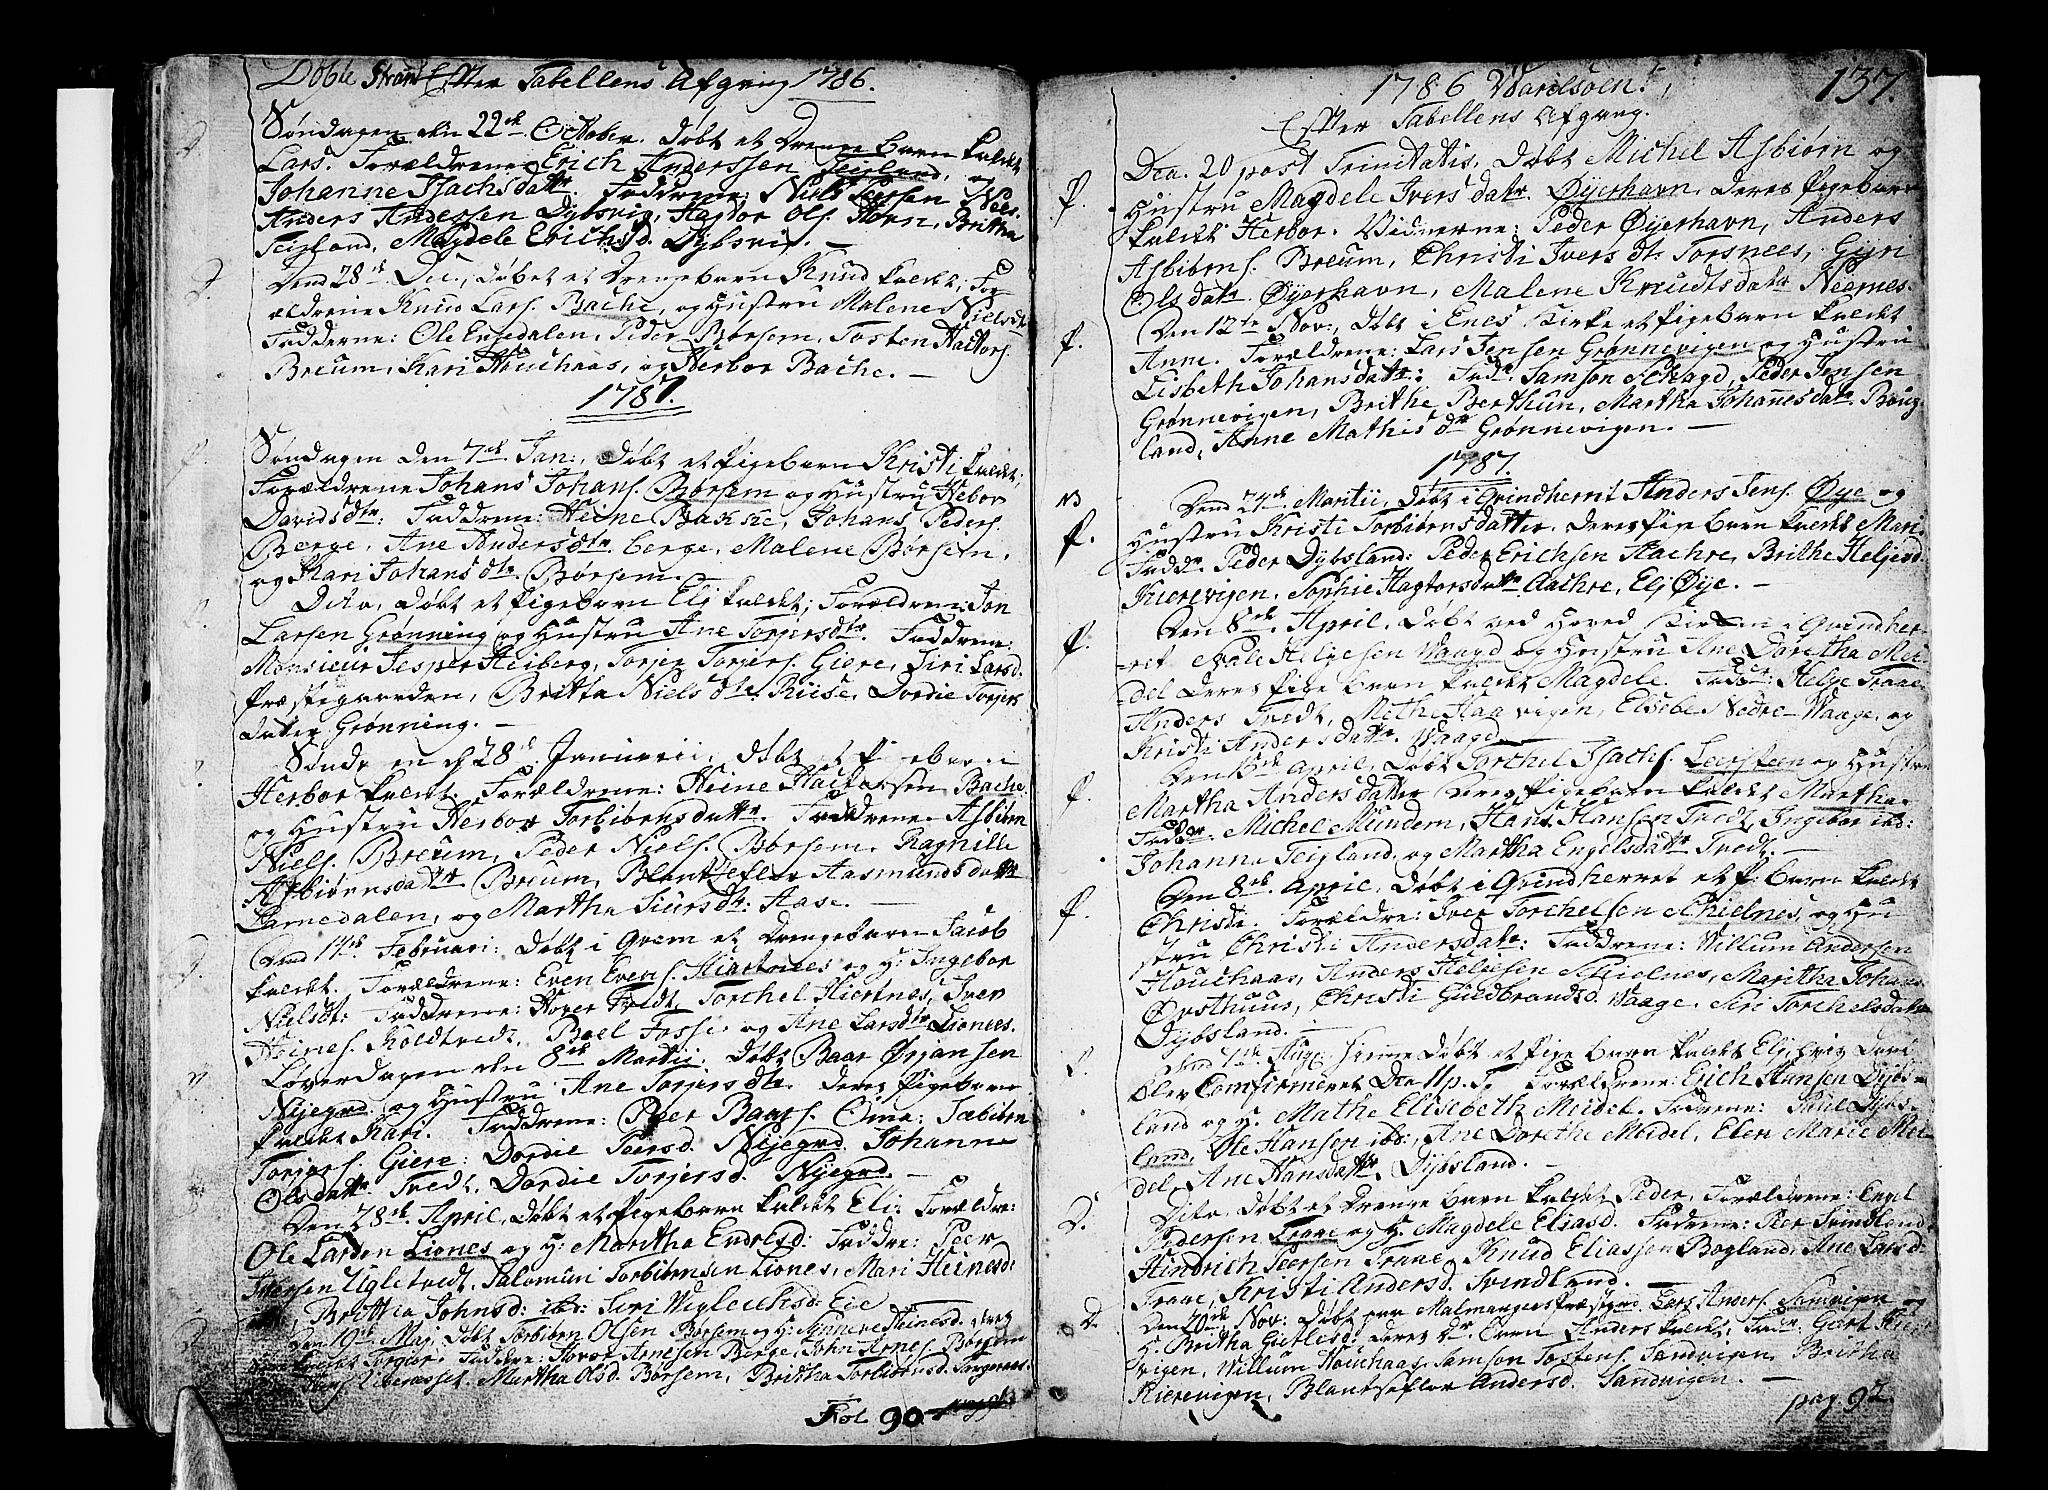 Døbte Strand Efter Tabellens Afgang 1786.
Søndagen den 22de October. døbt et Drenge barn kaldet
Lars. Forældrene Erich Anderssen Teigland, og
Johanne Isachsdattr. Fadderne: Niels Larsen Nees.
Anders Anderssen Dybsvig, Hagtor Ols. Hovn, Britha
Teigland, Magdele Erichsd. Dybsvig. —
D. Dend 28de Do., døbet et Drengebarn Knud kaldet; For-
ældrene Knud Lars. Bache, og Hustru Malene Nielsdt
Fadderne: Ole Engedalen, Peder Børsem, Tosten Hactors.
Breum, Kari Houchaas, og Herbor Bache. —
1787.
Søndagen den 7de Jan:, døbt et Pigebarn Kristi kaldet;
Forældrene Johans Johans. Børsem og Hustru Hebor
Davidsdtr: Fadderne: Heine Bakke, Johans Peders.
Berge, Ane Andersdtr. berge, Malene Børsem,
og Kari Johansdtr. Børsem. —
Dito, døbt et Pigebarn Eli kaldet; Forældrene: Jon
Larsen Grønning og Hustru Ane Torjersdtr. Fadderne:
Monsieur Jesper Heiberg, Torjer Torjers. Giere, Siri Larsd.
Præstegaarden, Britta Niels dtr. Riise, Dordie Torjers
datter Grønning. —
Søndagen d 28de Januarii, døbt et Pigebarn
Herbor kaldet. Forældrene: Heine Hactorsen Bache
og Hustru Herbor Torbiørnsdattr. Fadderne Asbiørn
Niels. Breum, Peder Niels. Børsem, Ragnille
Asbiørnsdattr Breum, Blantzeflor Aasmundsdattr
Lamedalen, og Martha Siursdtr: Aase. —
Dend 17de Februari: døbt i Qvam et Drengebarn Jacob
kaldet. Forældrene: Even Evens. Hiartnees og H: Ingebor
Nielsdt: Fadderne: Hover Tvedt, Torchel Hiertnes, Iver
Heines. Koldtvedt, Boel Fosse, og Ane Larsdtr Lionees.
Løverdagen den 8de Martii: døbt Baar Ørjansen
Nijegrd og Hustru Ane Torjersdtr. deres Pigebarn
kaldet Kari. Fadderne: Peer Baars. Oma: Tæbiørn
Torjers. Giere: Dordie Peersd. Nijegrd. Johanne
Olsdattr. Tvedt, Dordie Torjersd. Nijegrd. —
Den 28de April, døbt et Pigebarn kaldet Eli: Forældre:
Ole Larsen Liones og H: Maritha Endresd: Faddre: Peer
Iversen Ugletvedt, Salomun Torbiørnsen Liones, Mari Heinesd:
Brittha Johnsd: ib: Siri Wigleichsd. Eie
Den 19de Maj, døbt Torbiørn Olsen Børsem og H: Synneve Heinesd. deres
kaldet Torgier. Faddre: Hovor Arnesen Berge, John Arnes. Børsem
Hans Ueraasset, Martha Olsd. Børsem, Britha Torbiørnsd. Torgernes
Fol 90
1786 Warilsøen.
137.
Efter Tabellens Afgang.
P. Dca. 20 post Trinitatis, døbt Michel Asbiørn og
Hustru Magdele Ivers datr. Øyerhavn, deres Pigebarn
kaldet Herbor. Vidnerne: Peder Øyerhavn, Anders
Asbiørns. Breum, Christi Ivers dtr. Torsnees, Gyri
Olsdatr. Øyerhavn, Malene Knudtsdatr Neernes.
P. Den 12te Nov:, døbt i Enes Kirke et Pigebarn kaldet
Anne. Forældrene: Lars Jensen Grønnevigen og Hustru
Lisbeth Johansdattr: Fadr. Samson Schagd, Peder Jensen
Grønnevigen, Brithe Berthun, Martha Johanesdatr. Boug-
land, Anne Mathis dtr Grønnevigen. —
1787.
P. Dend 24de Martii, døbt i Qvindherrit Anders Jens. Øye og
Hustru Kristi Torbiørnsdatter, deres Pige barn kaldet Mari.
Fadd. Peder Dybsland: Peder Erichsen Aachre, Brithe Heljesd.
Kierevigen, Sophie Hagtorsdattr Aachre, Eli Øye. —
P. Den 8de April, døbt ved Hoved Kirken i Qvindher-
ret Nole Heljesen Waagd og Hustru Ane Dorethe Mei-
del deres Pige barn kaldet Magdele. Faddr: Helje Traae.
Anders Tvedt, Methe Aavigen, Elsebe Nedre-Waage, og
Kristi Andersdattr. Waagd.
P. Den 15de April, døbt Torchel Isachs. Leersteen og Hustru
Martha Anders datter deres Pigebarn kaldet Martha.
Faddr. Michel Mundem, Hans Hansen Tvedt, Ingebor ibd:
Johanna Teigland, og Martha Engelsdattr Tvedt. —
P. Den 8de April, døbt i Qvindherret et P: barn kaldet
Christi. Forældre: Iver Torchelsen Schielnes, og Hu
stru Christi Andersdatr: Fadderne: Willum Andersen
Houchaas, Anders Heljesen Schielnes, Maritha Johans.
Øvsthuus, Christi Guldbrandsd. Waage. Siri Torchelsdatr
Dybsland. —
Dend Hug: hjemme døbt et Pige barn kaldet
blev Comfirmeret Dca 11 p. T. Forældrene: Erich Hansen Dybs-
land og H. Mathe Elisebeth Meidel. Faddrene: Poul Dybs-
land, Ole Hansen ibd:, Ane Dorethe Meidel, Elen Marie Mei-
del, Ane Hansdattr. Dybsland. —
D. Dito, døbt et Drenge barn kaldet Peder, Forældrene: Engel
Pedersen Traae og H. Magdele Eliasd. Faddrene: Peer Svindland
Hindrich Peersen Traae, Knud Eliassen Bogland, Ane Larsd.
Traae, Kristi Andersd. Svindland. —
D. Den 20de Nov: døbt paa Malmangers Præstgrd. Lars Anders. Sandvigen og
H. Britha Giertsd: deres Dr. Barn Anders kaldet. Fadr. Giert Kiere
vigen, Willum Houchaas, Samson Tostens. Sandvigen, Britha
Kierevigen, Blantseflor Andersd. Sandvigen. —
pag. 92.